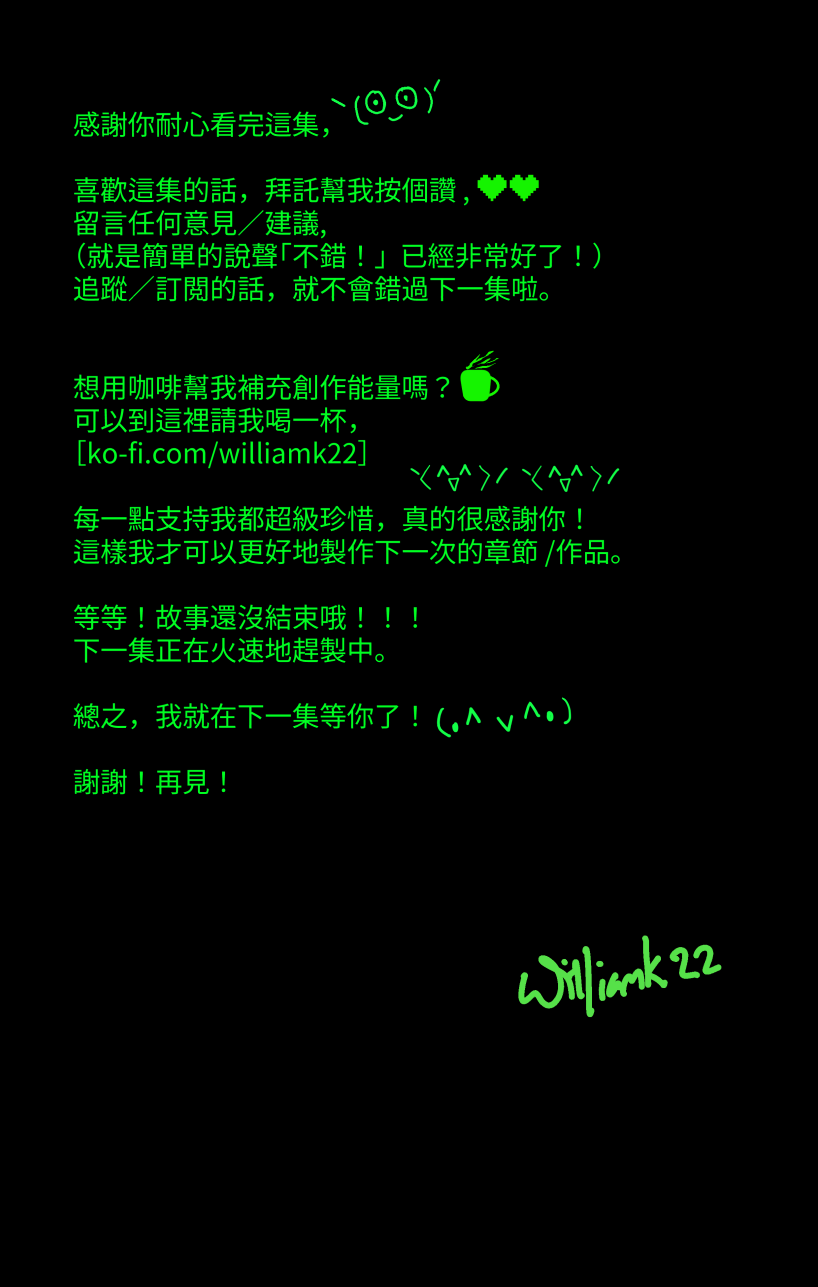 感謝你耐心看完這集，
喜歡這集的話，拜託幫我按個讚 ,
留言任何意見／建議,
（就是簡單的說聲「不錯！」已經非常好了！）
追蹤／訂閱的話，就不會錯過下一集啦。
想用咖啡幫我補充創作能量嗎？
可以到這裡請我喝一杯，
［ko-fi.com/williamk22］
每一點支持我都超級珍惜，真的很感謝你！
這樣我才可以更好地製作下一次的章節 /作品。
等等！故事還沒結束哦！！！
下一集正在火速地趕製中。
總之，我就在下一集等你了！
謝謝！再見！
Williamk22